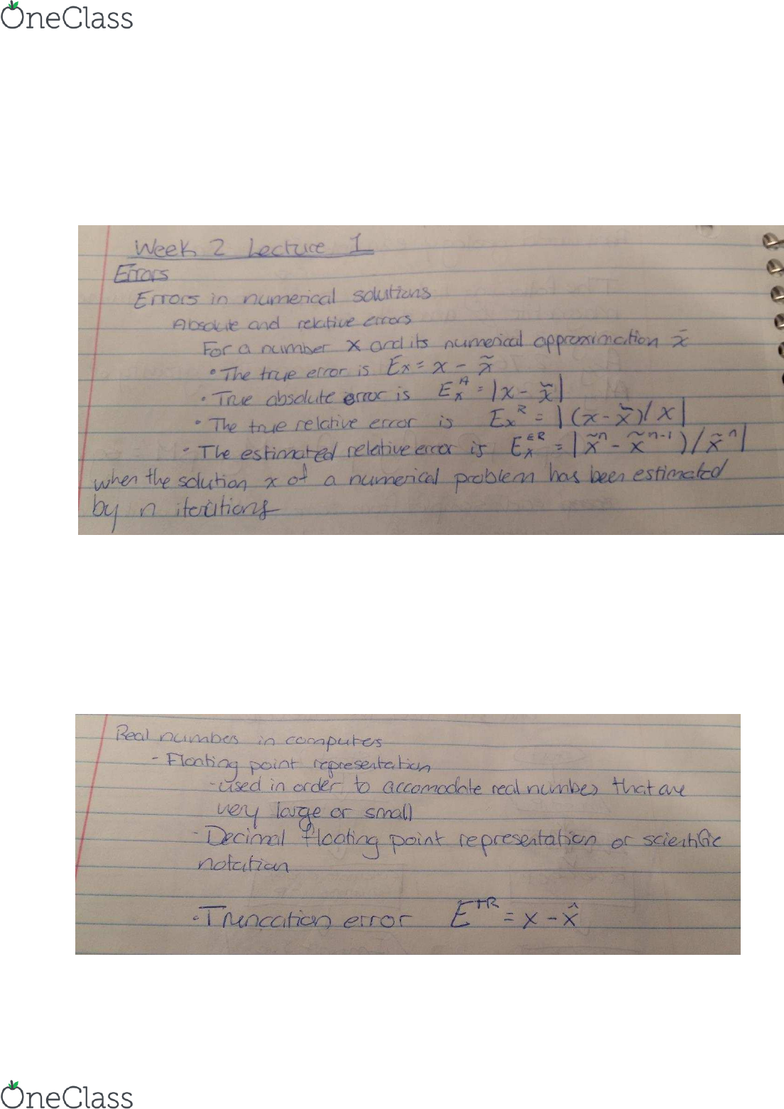 OneClass
Week 2 Lecture 1
Errors
Errors in numerical solutions
Absolute and relative errors
For a number x and its numerical approximation x̃
• The true error is Ex = x - x̃
• True absolute error is E_x^A = |x - x̃|
• The true relative error is E_x^R = |(x - x̃)/x|
- The estimated relative error is E_x^ER = |x̃^n - x̃^n-1)/x̃^n|
when the solution x of a numerical problem has been estimated
by n iterations
Real numbes in computes
- Floating point representation
- used in order to accomodate real numbes that are
very large or small
- Decimal floating point representation or scientific
notation
• Truncation error E^TR = x - x̂
OneClass